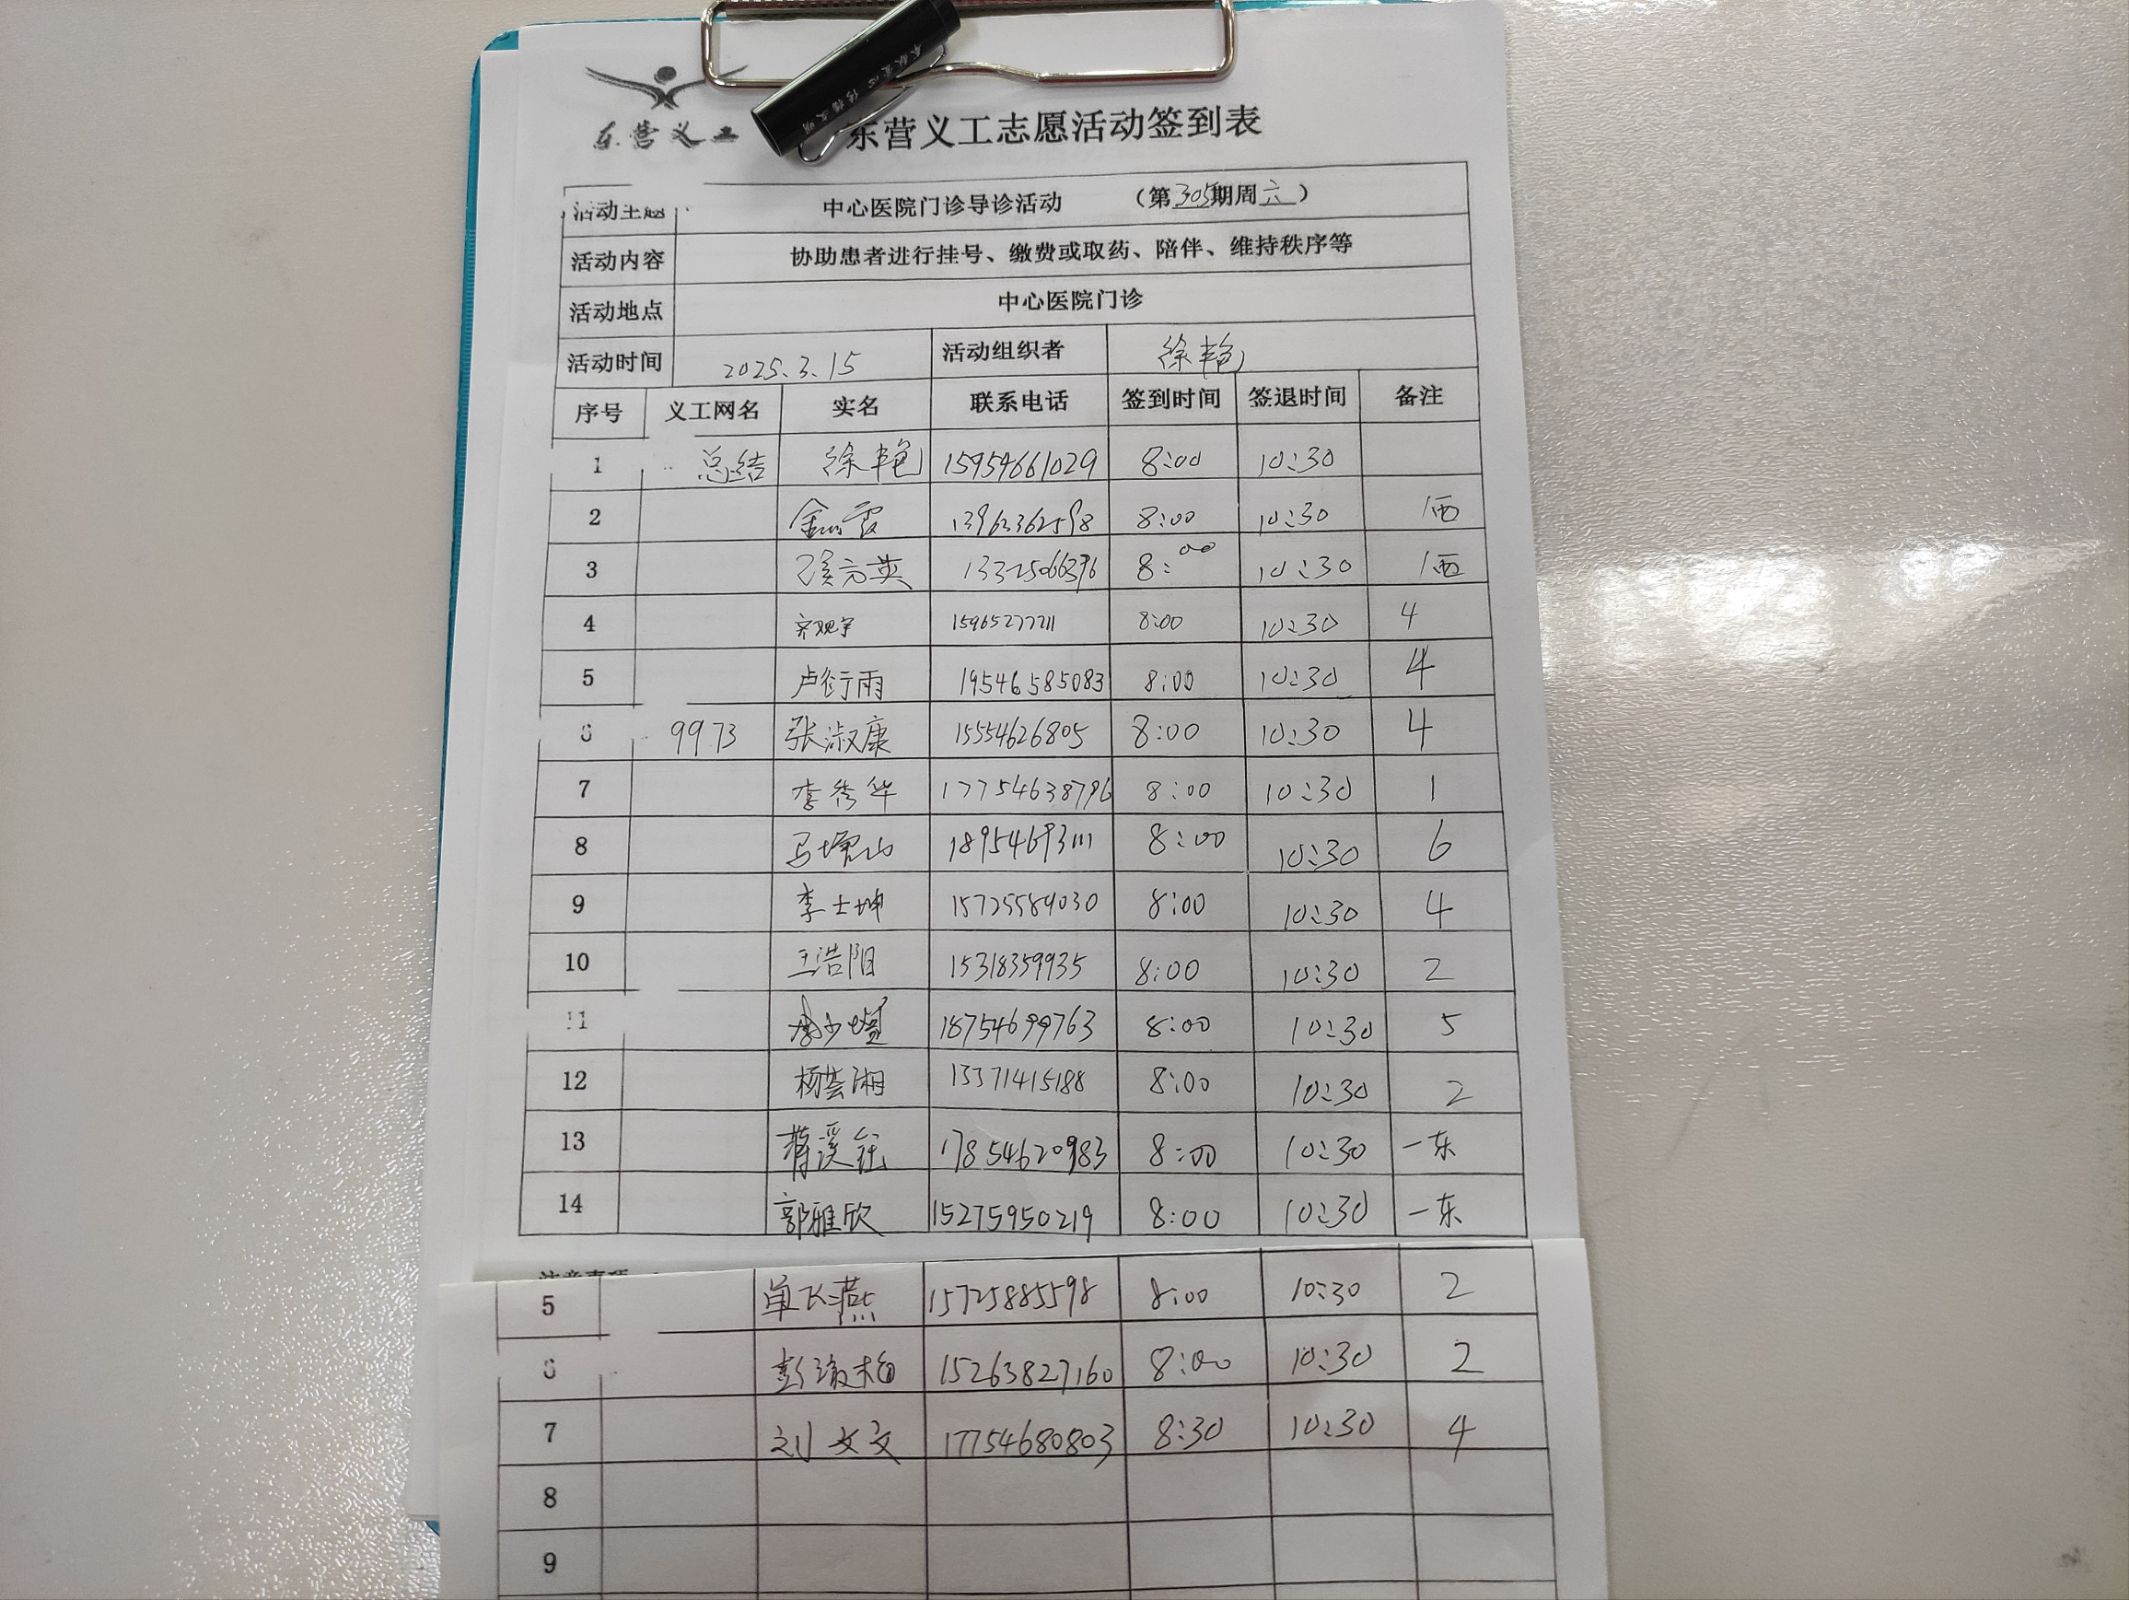 东营义工
东营义工志愿活动签到表
活动主题 中心医院门诊导诊活动 （第305期周六）
活动内容 协助患者进行挂号、缴费或取药、陪伴、维持秩序等
活动地点 中心医院门诊
活动时间 2025.3.15 活动组织者 徐艳
序号 义工网名 实名 联系电话 签到时间 签退时间 备注
1 总结 徐艳 15954661029 8:00 10:30
2 13963362598 8:00 10:30 1西
3 13325066396 8:00 10:30 1西
4 15965277211 8:00 10:30 4
5 卢衍雨 19546585083 8:00 10:30 4
6 9973 张淑康 15554626805 8:00 10:30 4
7 李秀华 17754638796 8:00 10:30 1
8 马增山 18954693111 8:00 10:30 6
9 李士坤 15725589030 8:00 10:30 4
10 王浩阳 15318359935 8:00 10:30 2
11 18754699763 8:00 10:30 5
12 杨芸湘 13371415188 8:00 10:30 2
13 17854620983 8:00 10:30 一东
14 郭雅欣 15275950219 8:00 10:30 一东
5 单飞燕 15725885598 8:00 10:30 2
6 15263827160 8:00 10:30 2
7 刘文文 17754680803 8:30 10:30 4
8
9